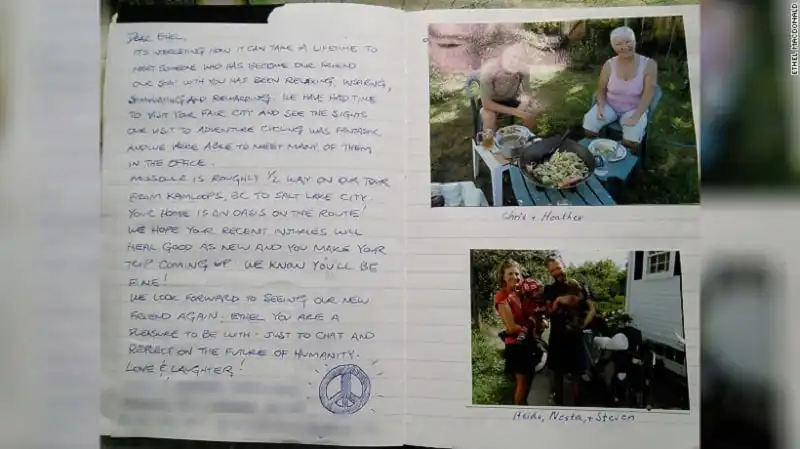 DEAR ETHEL,
ITS INTERESTING HOW IT CAN TAKE A LIFETIME TO
MEET SOMEONE WHO HAS BECOME OUR FRIEND
OUR STAY WITH YOU HAS BEEN RELAXING, INSPIRING,
STIMULATING AND REWARDING. WE HAVE HAD TIME
TO VISIT YOUR FAIR CITY AND SEE THE SIGHTS
OUR VISIT TO ADVENTURE CYCLING WAS FANTASTIC
AND WE WERE ABLE TO MEET MANY OF THEM
IN THE OFFICE.
MISSOULA IS ROUGHLY 1/2 WAY ON OUR TOUR
FROM KAMLOOPS, BC TO SALT LAKE CITY.
YOUR HOME IS AN OASIS ON THE ROUTE!
WE HOPE YOUR RECENT INJURIES WILL
HEAL GOOD AS NEW AND YOU MAKE YOUR
TRIP COMING UP. WE KNOW YOU'LL BE
FINE!
WE LOOK FORWARD TO SEEING OUR NEW
FRIEND AGAIN. ETHEL YOU ARE A
PLEASURE TO BE WITH - JUST TO CHAT AND
REFLECT ON THE FUTURE OF HUMANITY.
LOVE & LAUGHTER!
Chris + Heather
Heidi, Nesta, + Steven
ETHEL MACDONALD